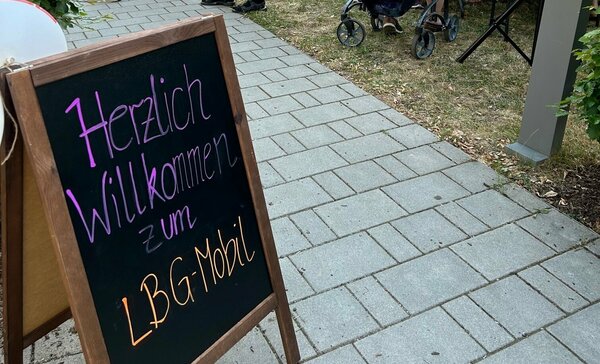 Herzlich
Willkommen
zum
LBG-Mobil